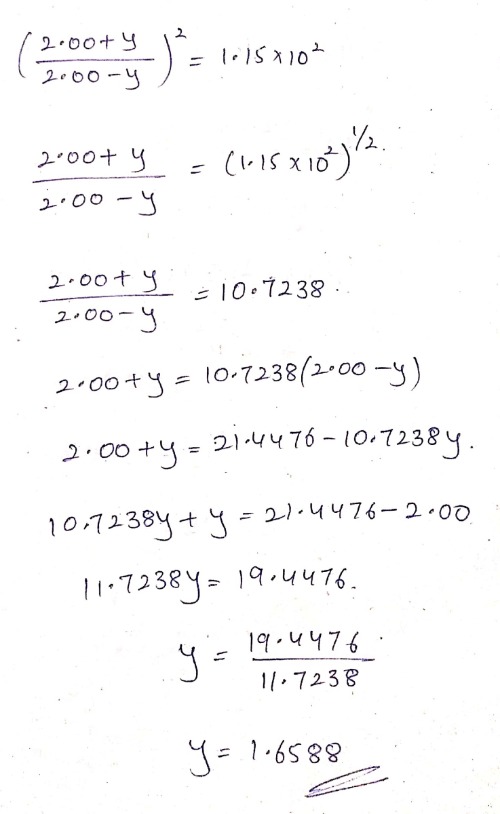 (2.00+y / 2.00-y)² = 1.15×10²
2.00+y / 2.00-y = (1.15×10²)^1/2.
2.00+y / 2.00-y = 10.7238.
2.00+y = 10.7238(2.00-y)
2.00+y = 21.4476-10.7238y.
10.7238y+y = 21.4476-2.00
11.7238y = 19.4476.
y = 19.4476 / 11.7238
y = 1.6588